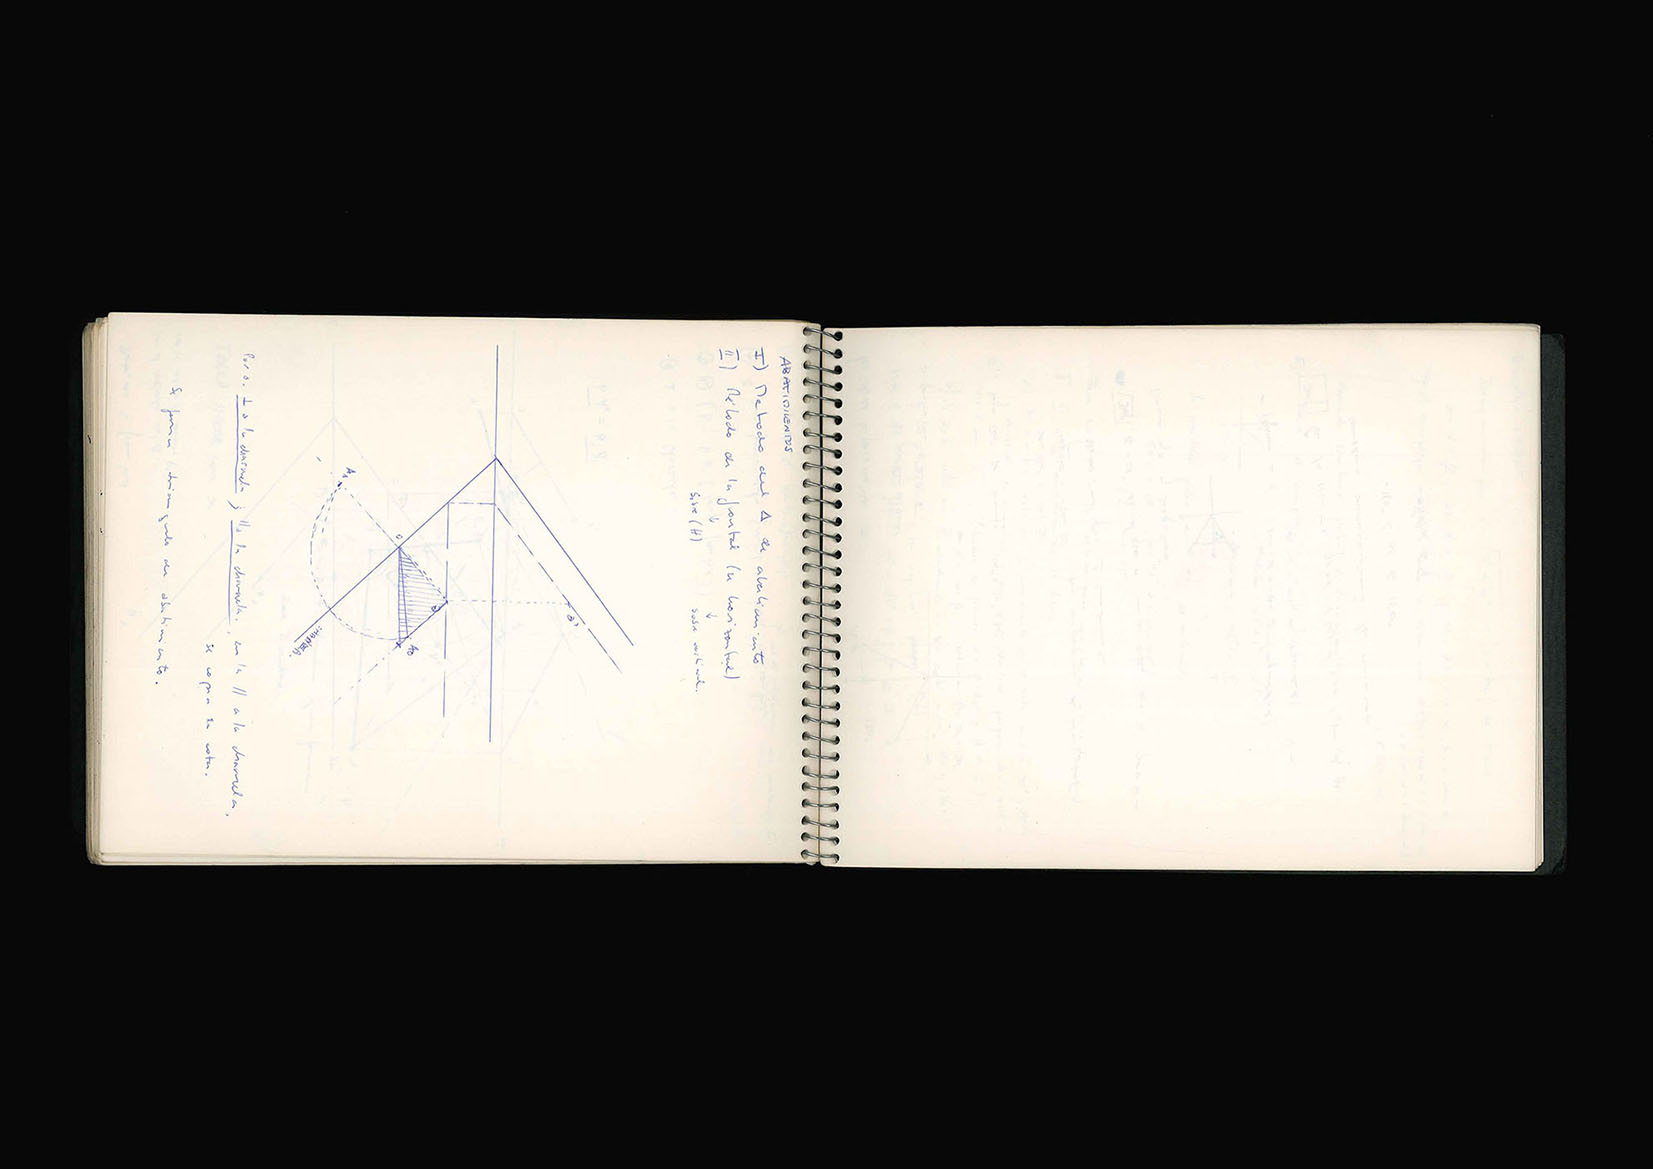 ABATIMIENTOS
I) Metodo del Δ de abatimiento
II) Método de la frontal (u horizontal)
↓ ↓
sobre (H) sobre vertical.
a'
A₀
a
o
A₁
charnela
Por a. ⊥ a la charnela y // a la charnela, en la // a la charnela,
se copia la cota.
Se forma triangulo de abatimiento.